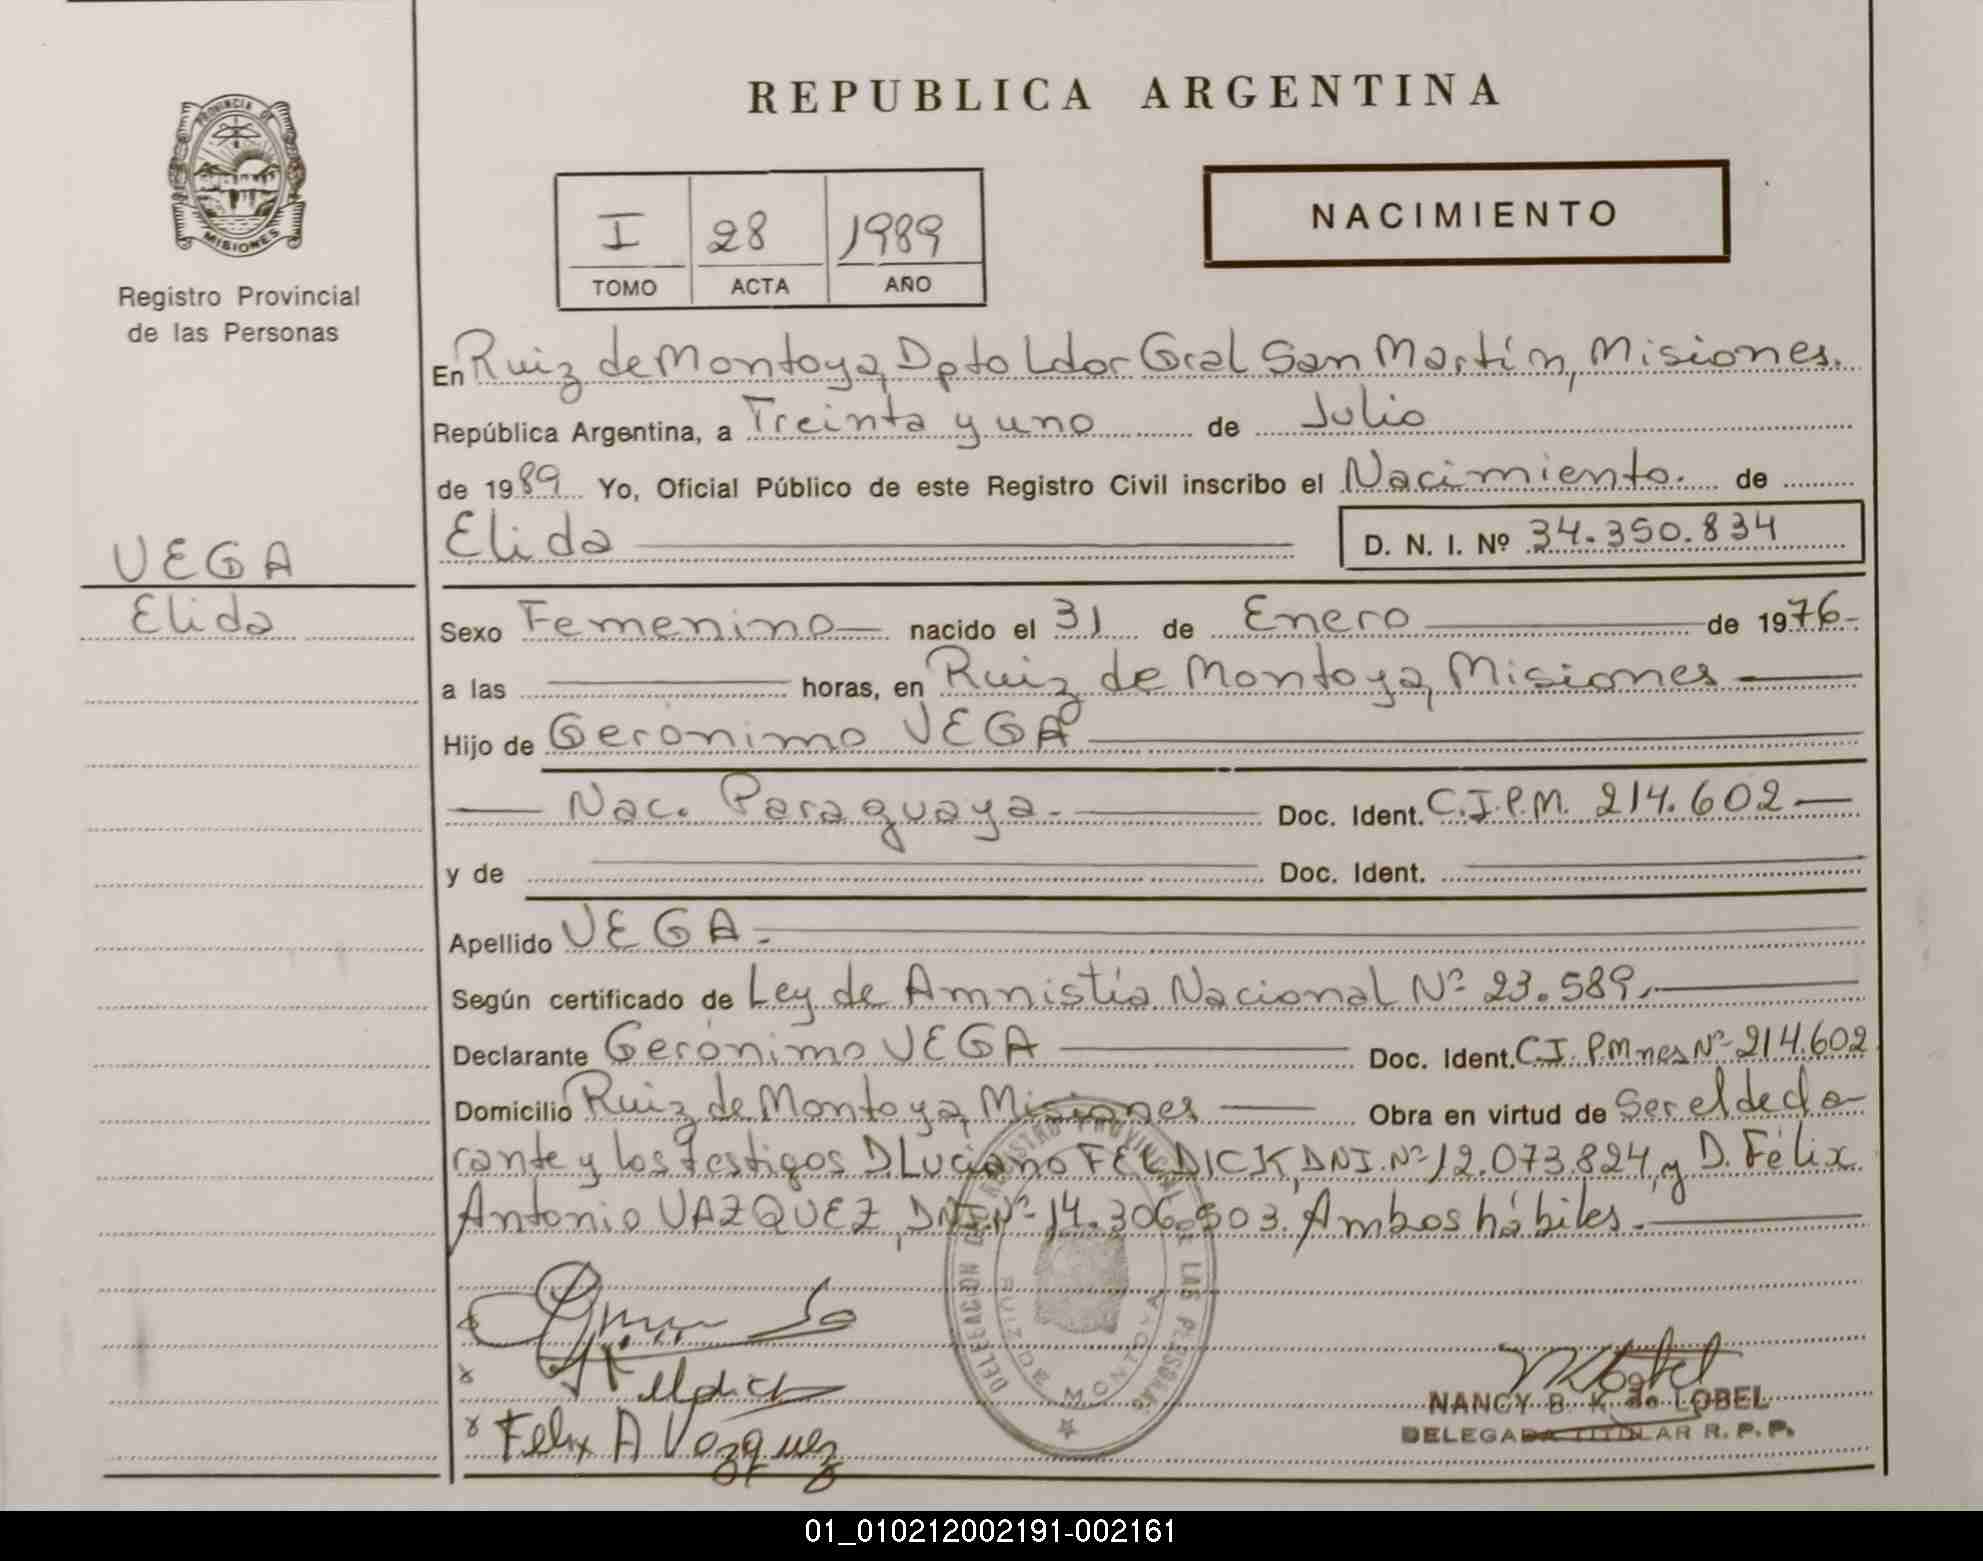 REPUBLICA ARGENTINA
PROVINCIA DE MISIONES
Registro Provincial
de las Personas
I 28 1989
TOMO ACTA AÑO
NACIMIENTO
En Ruiz de Montoya, Dpto Ldor Gral San Martín, Misiones.
República Argentina, a Treinta y uno de Julio
de 1989 Yo, Oficial Público de este Registro Civil inscribo el Nacimiento. de
Elida D. N. I. Nº 34.350.834
VEGA
Elida
Sexo Femenino nacido el 31 de Enero de 1976
a las horas, en Ruiz de Montoya, Misiones
Hijo de Gerónimo VEGA
Nac. Paraguaya. Doc. Ident. C.I.P.M. 214.602
y de Doc. Ident.
Apellido VEGA
Según certificado de Ley de Amnistía Nacional Nº 23.589.
Declarante Gerónimo VEGA Doc. Ident. C.I. P.Mnes Nº 214.602
Domicilio Ruiz de Montoya, Misiones Obra en virtud de Ser el decla
rante y los testigos D. Luciano FELDICK, DNI. Nº 12.073.824, y D. Félix
Antonio VAZQUEZ, DNI. Nº 14.306.503. Ambos hábiles.
DELEGACION DEL REGISTRO PROVINCIAL DE LAS PERSONAS
RUIZ DE MONTOYA
Feldick
Felix A Vazquez
NANCY B. K. de LOBEL
DELEGADA TITULAR R. P. P.
01_010212002191-002161